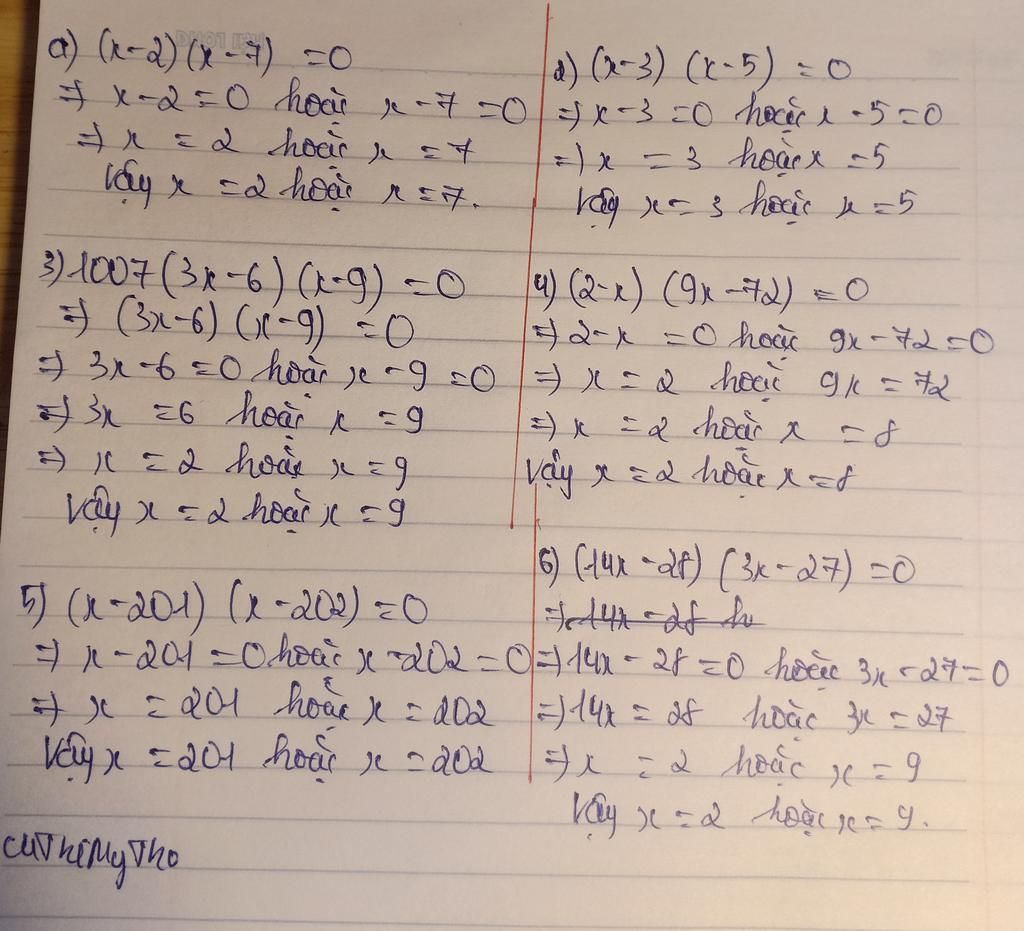 a) (x-2) (x-7) = 0
=> x-2=0 hoặc x-7=0
=> x = 2 hoặc x = 7
Vậy x = 2 hoặc x = 7.
2) (x-3) (x-5) = 0
=> x-3 =0 hoặc x-5=0
=> x = 3 hoặc x = 5
Vậy x = 3 hoặc x = 5
3) 1007 (3x-6) (x-9) = 0
=> (3x-6) (x-9) = 0
=> 3x-6 = 0 hoặc x-9 = 0
=> 3x = 6 hoặc x = 9
=> x = 2 hoặc x = 9
Vậy x = 2 hoặc x = 9
4) (2-x) (9x-72) = 0
=> 2-x = 0 hoặc 9x-72=0
=> x = 2 hoặc 9x = 72
=> x = 2 hoặc x = 8
Vậy x = 2 hoặc x = 8
5) (x-201) (x-202) = 0
=> x-201 = 0 hoặc x-202 = 0
=> x = 201 hoặc x = 202
Vậy x = 201 hoặc x = 202
6) (14x-28) (3x-27) = 0
=> 14x-28 h
=> 14x-28 = 0 hoặc 3x-27=0
=> 14x = 28 hoặc 3x = 27
=> x = 2 hoặc x = 9
Vậy x = 2 hoặc x = 9.